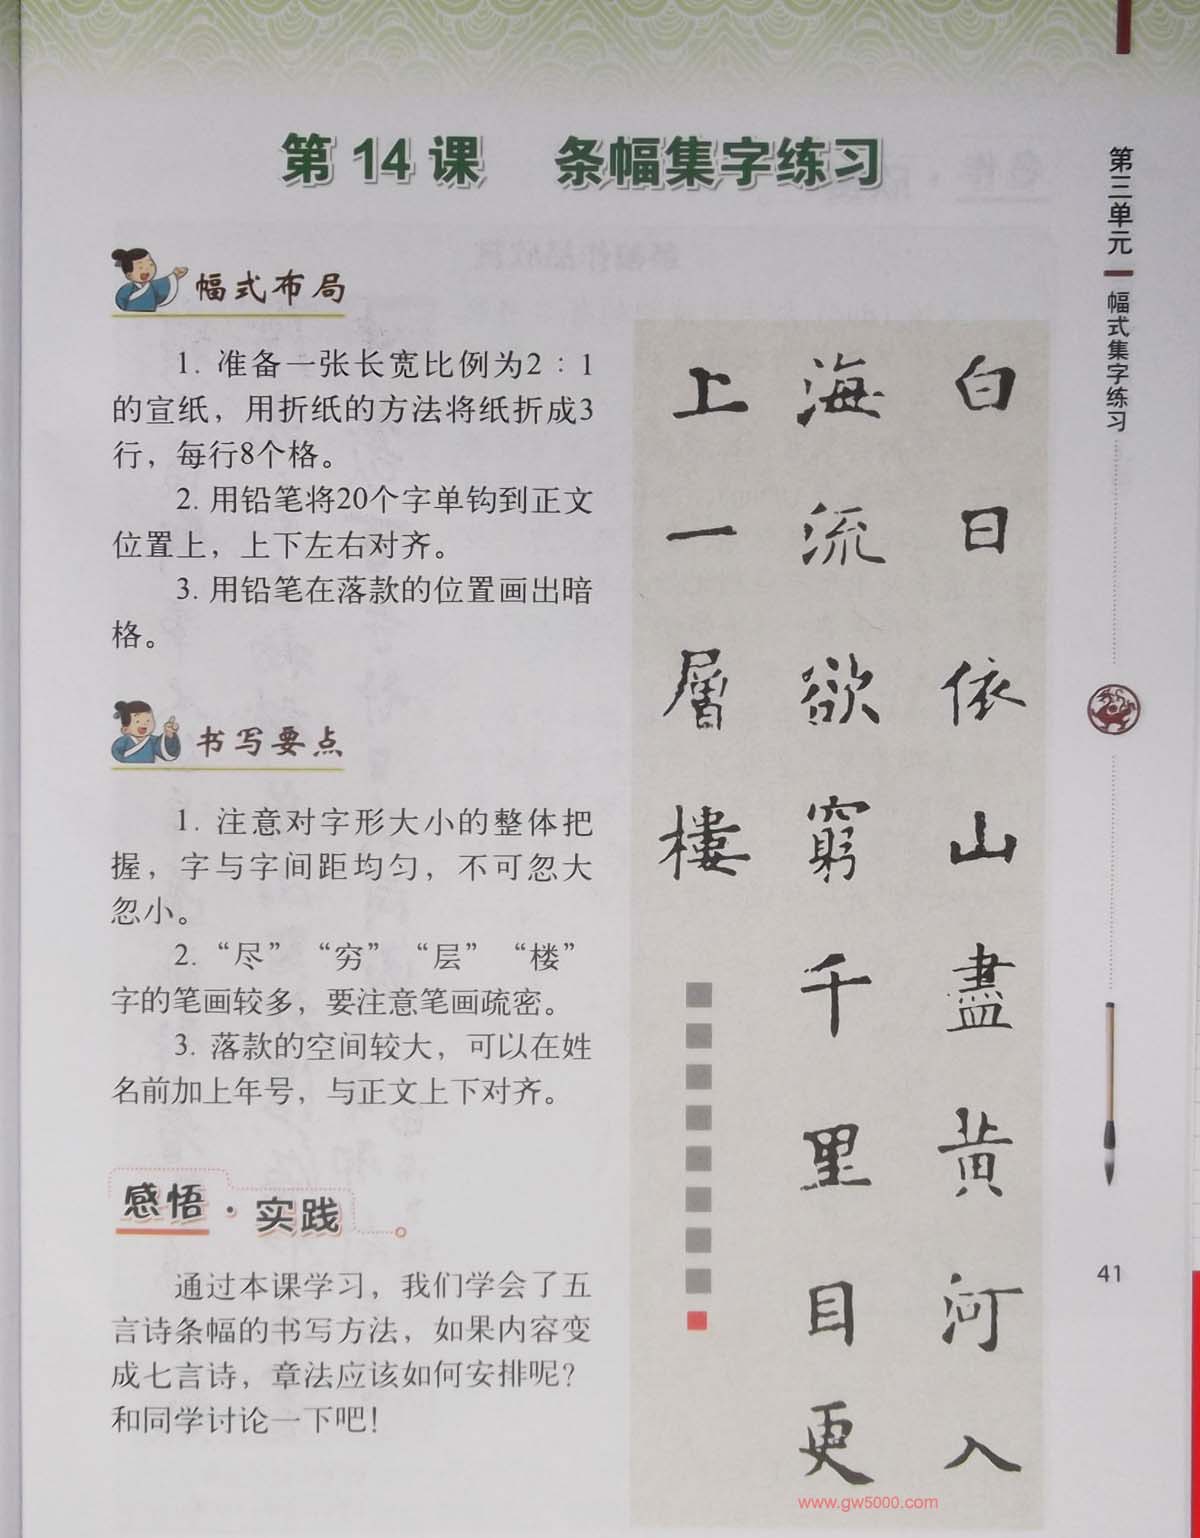 第14课 条幅集字练习
幅式布局
1. 准备一张长宽比例为2：1
的宣纸，用折纸的方法将纸折成3
行，每行8个格。
2. 用铅笔将20个字单钩到正文
位置上，上下左右对齐。
3. 用铅笔在落款的位置画出暗
格。
书写要点
1. 注意对字形大小的整体把
握，字与字间距均匀，不可忽大
忽小。
2. “尽” “穷” “层” “楼”
字的笔画较多，要注意笔画疏密。
3. 落款的空间较大，可以在姓
名前加上年号，与正文上下对齐。
感悟·实践
通过本课学习，我们学会了五
言诗条幅的书写方法，如果内容变
成七言诗，章法应该如何安排呢？
和同学讨论一下吧！
白日依山盡黄河入
海流欲窮千里目更
上一層樓
www.gw5000.com
第三单元
幅式集字练习
41